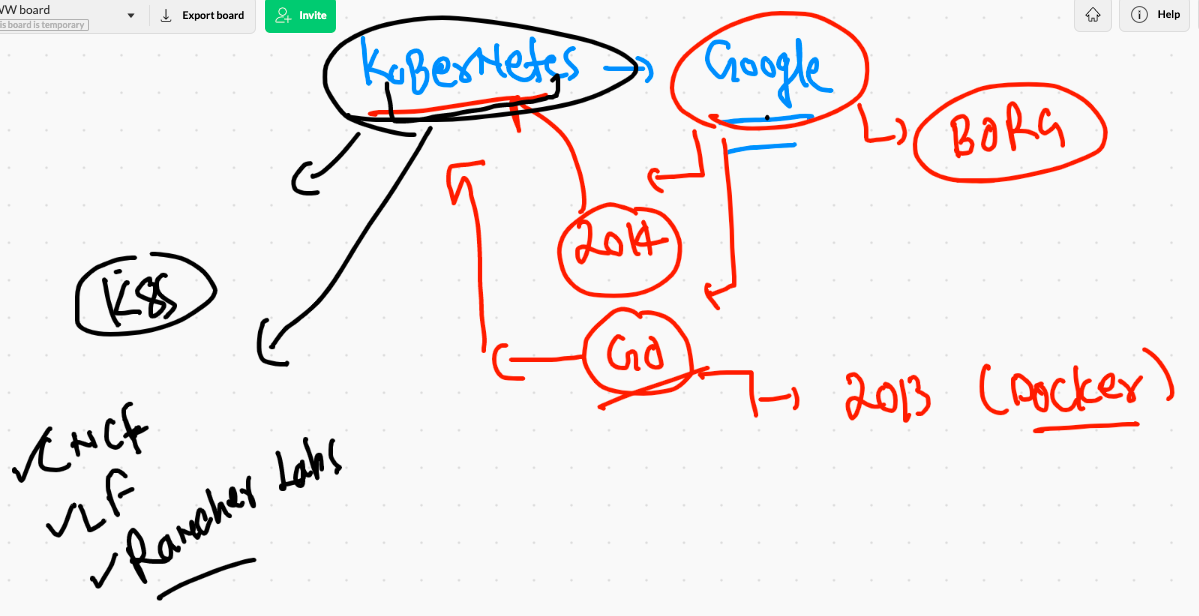 VW board
is board is temporary
Export board
Invite
Help
KuBerNetes
Google
BORG
2014
K8s
GO
2013 (Docker)
CNCF
LF
Rancher Labs